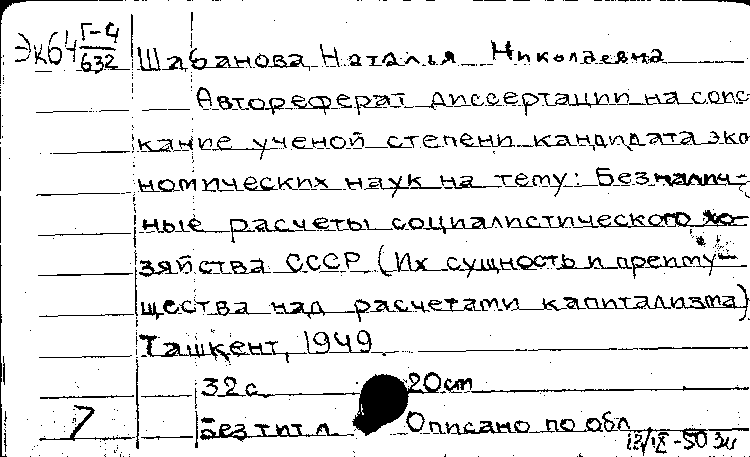 Эк64 Г-4/632
Шабанова Наталья Николаевна
Автореферат диссертации на соис-
кание ученой степени кандидата эко
номических наук на тему: Безналич-
ные расчеты социалистического хо-
зяйства СССР (Их сущность и преиму-
щества над расчетами капитализма)
Ташкент, 1949.
32 с. 20 cm
7 Без тит л Описано по обл